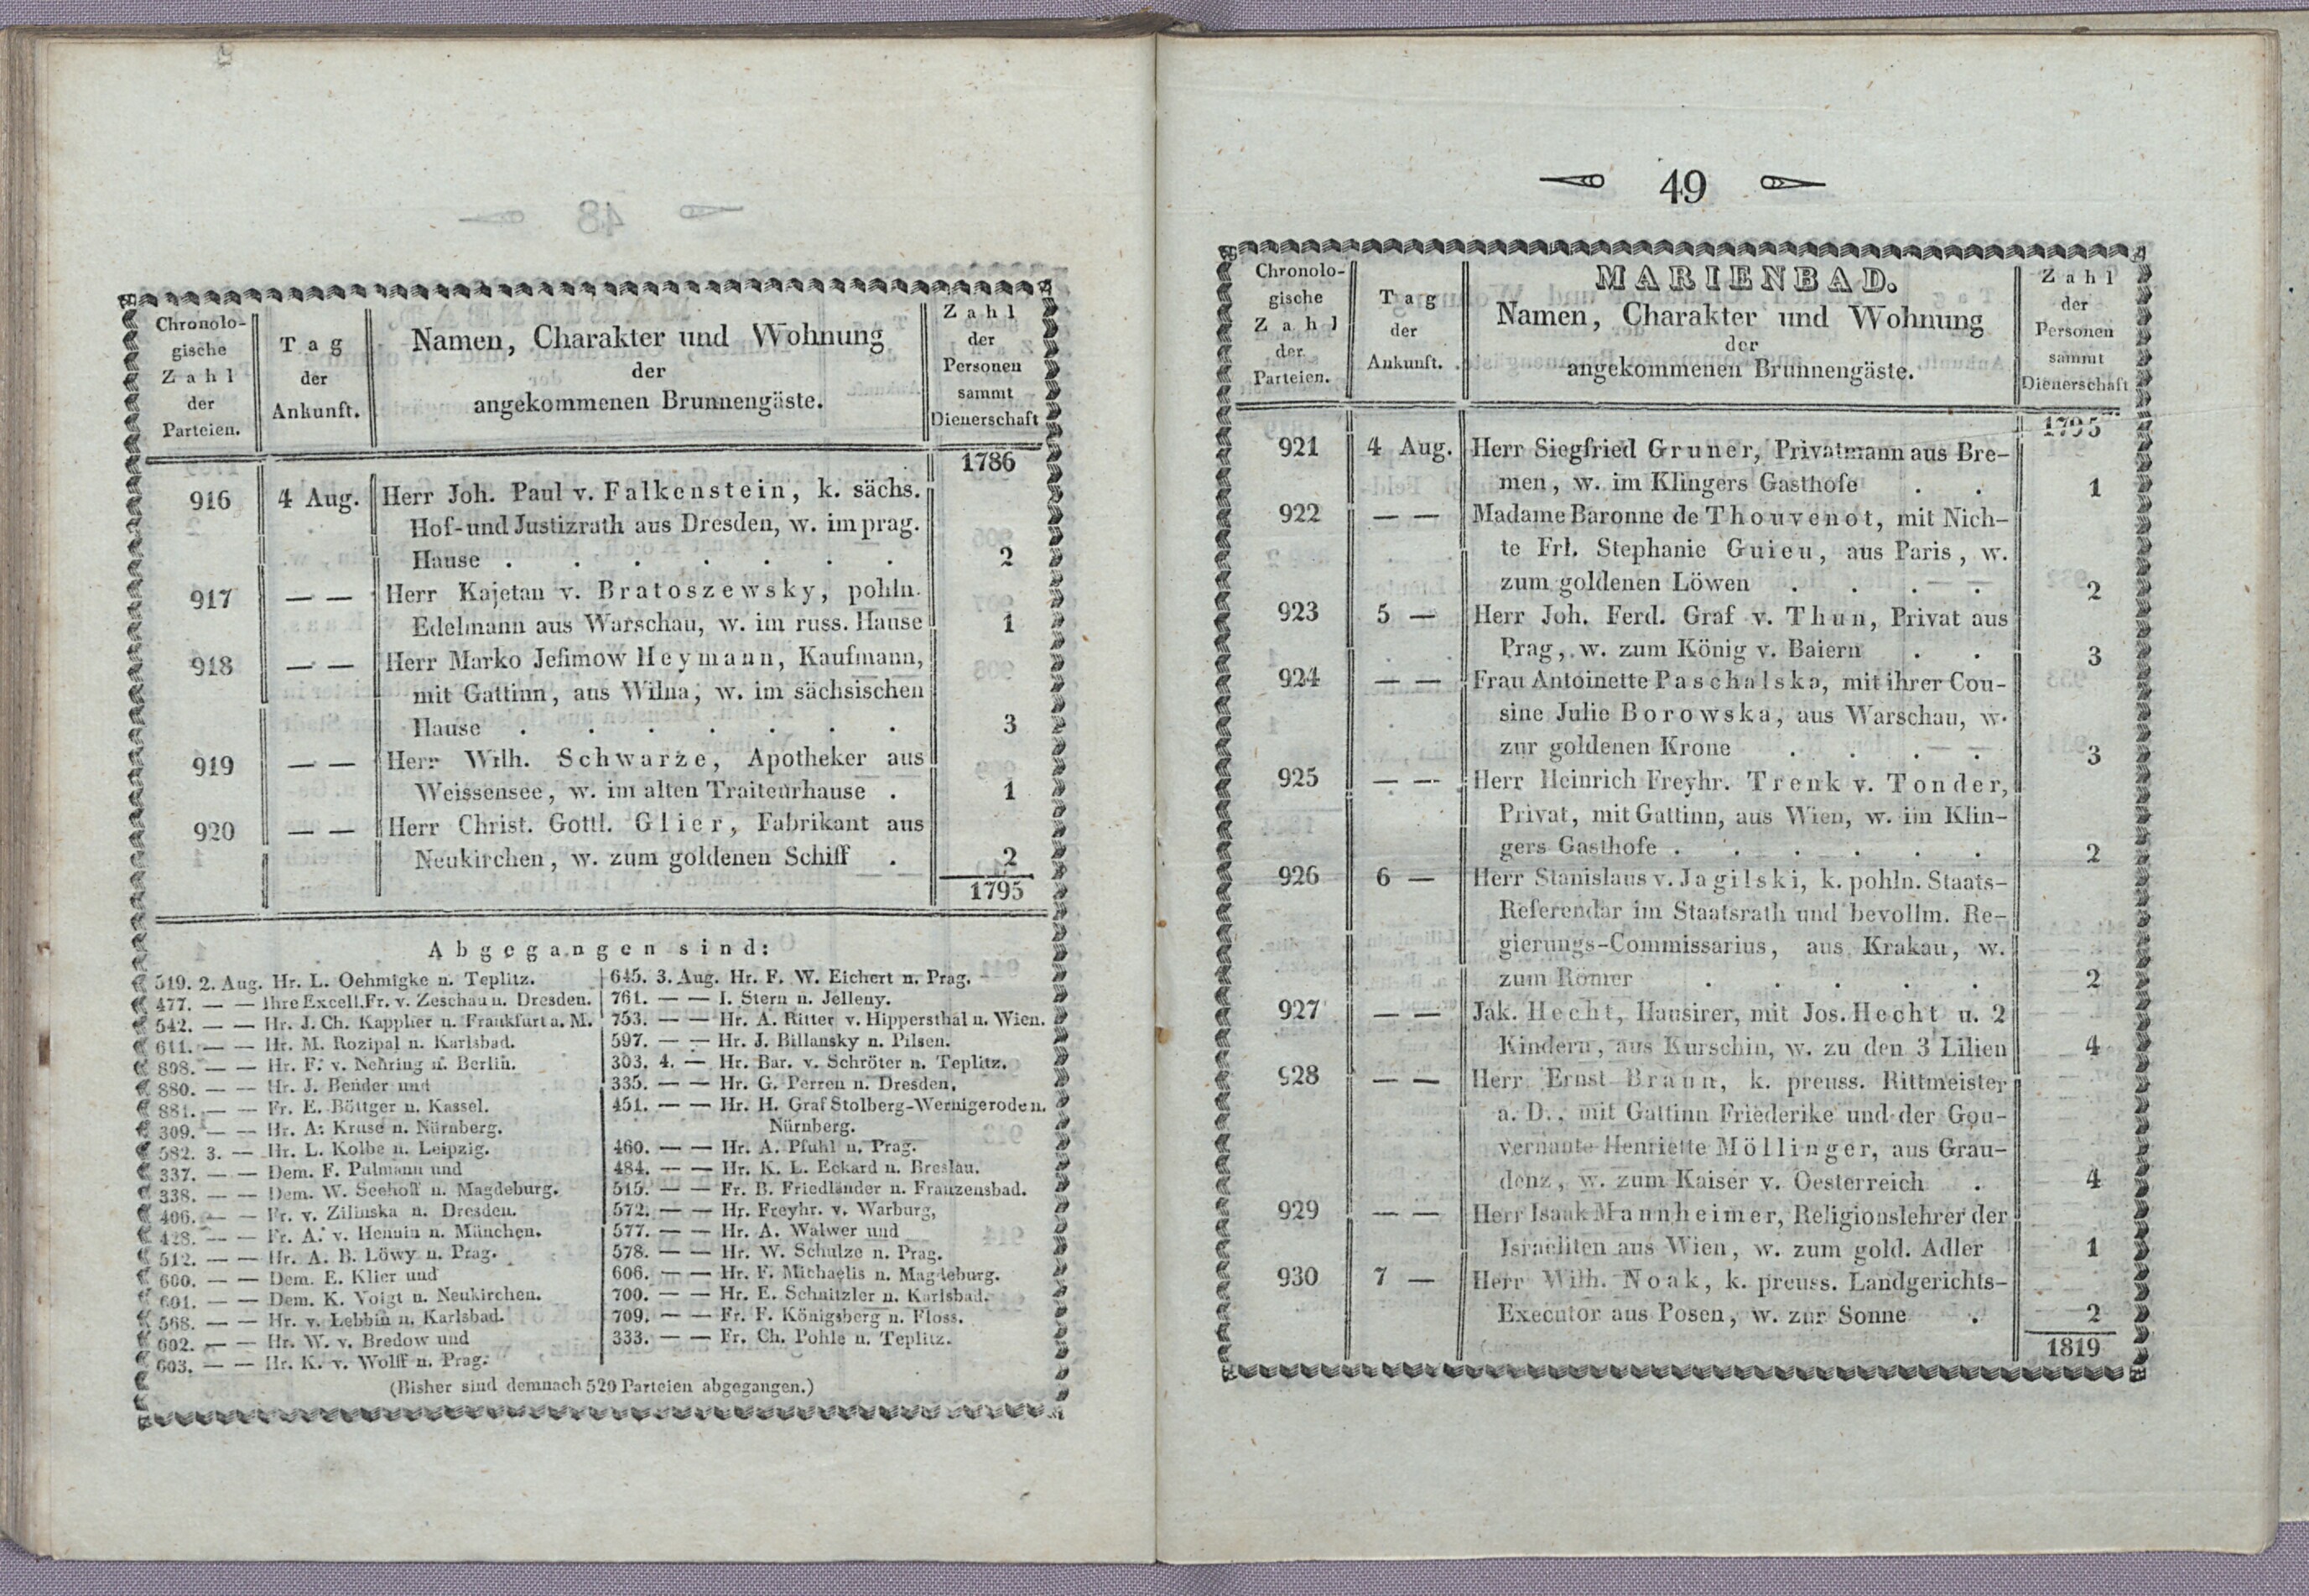 Chronolo-
gische
Zahl
der
Parteien.
Tag
der
Ankunft.
Namen, Charakter und Wohnung
der
angekommenen Brunnengäste.
Zahl
der
Personen
sammt
Dienerschaft
1786
916 4 Aug. Herr Joh. Paul v. Falkenstein, k. sächs.
Hof- und Justizrath aus Dresden, w. im prag.
Hause . . . . . . . 2
917 — — Herr Kajetan v. Bratoszewsky, pohln.
Edelmann aus Warschau, w. im russ. Hause 1
918 — — Herr Marko Jefimow Heymann, Kaufmann,
mit Gattinn, aus Wilna, w. im sächsischen
Hause . . . . . . . 3
919 — — Herr Wilh. Schwarze, Apotheker aus
Weissensee, w. im alten Traiteurhause . 1
920 — — Herr Christ. Gottl. Glier, Fabrikant aus
Neukirchen, w. zum goldenen Schiff . 2
1795
Abgegangen sind:
519. 2. Aug. Hr. L. Oehmigke n. Teplitz.
477. — — Ihre Excell. Fr. v. Zeschau n. Dresden.
542. — — Hr. J. Ch. Kapplier n. Frankfurt a. M.
611. — — Hr. M. Rozipal n. Karlsbad.
808. — — Hr. F. v. Nehring n. Berlin.
880. — — Hr. J. Bender und
881. — — Fr. E. Böttger n. Kassel.
309. — — Hr. A. Kruse n. Nürnberg.
582. 3. — Hr. L. Kolbe n. Leipzig.
337. — — Dem. F. Palmann und
338. — — Dem. W. Seehoff n. Magdeburg.
406. — — Fr. v. Zilinska n. Dresden.
428. — — Fr. A. v. Hennin n. München.
512. — — Hr. A. B. Löwy n. Prag.
600. — — Dem. E. Klier und
601. — — Dem. K. Voigt n. Neukirchen.
568. — — Hr. v. Lebbin n. Karlsbad.
602. — — Hr. W. v. Bredow und
603. — — Hr. K. v. Wolff n. Prag.
645. 3. Aug. Hr. F. W. Eichert n. Prag.
761. — — I. Stern n. Jelleny.
753. — — Hr. A. Ritter v. Hippersthal n. Wien.
597. — — Hr. J. Billansky n. Pilsen.
303. 4. — Hr. Bar. v. Schröter n. Teplitz.
335. — — Hr. G. Perren n. Dresden.
451. — — Hr. H. Graf Stolberg-Wernigerode n.
Nürnberg.
460. — — Hr. A. Pfuhl n. Prag.
484. — — Hr. K. L. Eckard n. Breslau.
515. — — Fr. B. Friedländer n. Franzensbad.
572. — — Hr. Freyhr. v. Warburg,
577. — — Hr. A. Walwer und
578. — — Hr. W. Schulze n. Prag.
606. — — Hr. F. Michaelis n. Magdeburg.
700. — — Hr. E. Schnitzler n. Karlsbad.
709. — — Fr. F. Königsberg n. Floss.
333. — — Fr. Ch. Pohle n. Teplitz.
(Bisher sind demnach 520 Parteien abgegangen.)
49
Chronolo-
gische
Zahl
der
Parteien.
Tag
der
Ankunft.
MARIENBAD.
Namen, Charakter und Wohnung
der
angekommenen Brunnengäste.
Zahl
der
Personen
sammt
Dienerschaft
1795
921 4 Aug. Herr Siegfried Gruner, Privatmann aus Bre-
men, w. im Klingers Gasthofe . . 1
922 — — Madame Baronne de Thouvenot, mit Nich-
te Frl. Stephanie Guieu, aus Paris, w.
zum goldenen Löwen . . . . 2
923 5 — Herr Joh. Ferd. Graf v. Thun, Privat aus
Prag, w. zum König v. Baiern . . 3
924 — — Frau Antoinette Paschalska, mit ihrer Cou-
sine Julie Borowska, aus Warschau, w.
zur goldenen Krone . . . . 3
925 — — Herr Heinrich Freyhr. Trenk v. Tonder,
Privat, mit Gattinn, aus Wien, w. im Klin-
gers Gasthofe . . . . . . 2
926 6 — Herr Stanislaus v. Jagilski, k. pohln. Staats-
Referendar im Staatsrath und bevollm. Re-
gierungs-Commissarius, aus Krakau, w.
zum Römer . . . . . 2
927 — — Jak. Hecht, Hausirer, mit Jos. Hecht u. 2
Kindern, aus Kurschin, w. zu den 3 Lilien 4
928 — — Herr Ernst Braun, k. preuss. Rittmeister
a. D., mit Gattinn Friederike und der Gou-
vernante Henriette Möllinger, aus Grau-
denz, w. zum Kaiser v. Oesterreich . 4
929 — — Herr Isaak Mannheimer, Religionslehrer der
Israeliten aus Wien, w. zum gold. Adler 1
930 7 — Herr Wilh. Noak, k. preuss. Landgerichts-
Executor aus Posen, w. zur Sonne . 2
1819